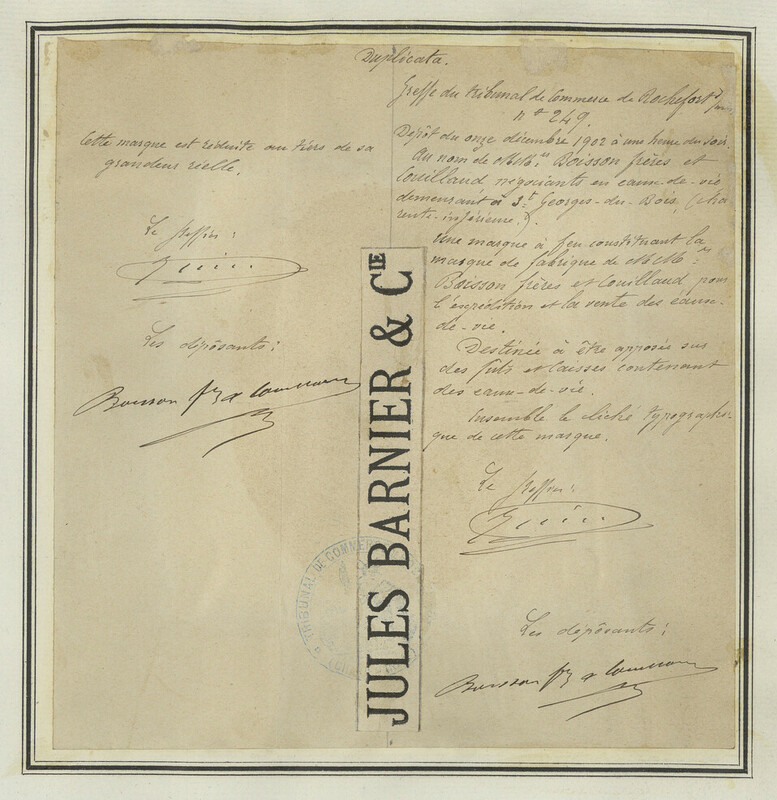 Duplicata.
Cette marque est réduite au tiers de sa
grandeur réelle.
Le Greffier:
Les dépôsants:
Boisson frs & Couillaud
JULES BARNIER & CIE
TRIBUNAL DE COMMERCE
Greffe du tribunal de Commerce de Rochefort s/
nº 249.
Dépôt du onze décembre 1902 à une heure du soir.
Au nom de MM.rs Boisson frères et
Couillaud négociants en eaux-de-vie
demeurant à St Georges-du-Bois, (Cha-
rente-inférieure.).
Une marque à feu constituant la
marque de fabrique de MM.rs
Boisson frères et Couillaud pour
l'expédition et la vente des eaux-
de-vie.
Destinée à être apposée sur
des fûts et caisses contenant
des eaux-de-vie.
Ensemble le cliché typographi-
que de cette marque.
Le Greffier:
Les dépôsants:
Boisson frs & Couillaud